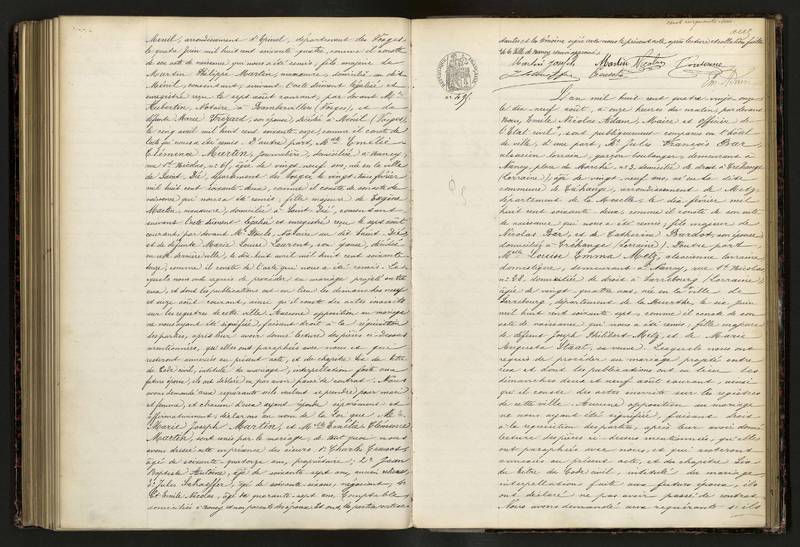 Ménil, arrondissement d'Epinal, département des Vosges,
le quatre Juin mil huit cent soixante quatre, comme il conste
de son acte de naissance qui nous a été remis, fils majeur de
Martin Philippe Martin, manœuvre, domicilié au dit
Ménil, consentant, suivant l'acte dûment légalisé et
enregistré reçu le sept août courant, par devant Me
Aubertin, Notaire à Rambervillers (Vosges), et de
défunte Marie Trézard, son épouse, décédée à Ménil (Vosges)
le cinq avril mil huit cent soixante onze, comme il conste de
l'acte qui nous a été remis. D'autre part, Melle Emélie
Clémence Martin, journalière, domiciliée à Nancy,
rue St Nicolas, âgée de vingt neuf ans, née en la ville
de Saint Dié, département des Vosges, le vingt trois février
mil huit cent soixante deux, comme il conste de son acte de
naissance qui nous a été remis, fille majeure de Eugène
Martin, manœuvre, domicilié à Saint Dié, consentant
suivant l'acte dûment légalisé et enregistré reçu le sept août
courant, par devant Me Notaire au dit Saint Dié
et de défunte Marie Louise Laurent, son épouse, décédée
en cette dernière ville, le dix huit avril mil huit cent soixante
comme il conste de l'acte qui nous a été remis. Les
quels nous ont requis de procéder au mariage projeté entre
eux, et dont les publications ont eu lieu les dimanches neuf
et seize août courant, ainsi qu'il conste des actes inscrits
sur les registres de cette ville. Aucune opposition au mariage
ne nous ayant été signifiée, faisant droit à la réquisition
des parties, après leur avoir donné lecture des pièces ci-dessus
mentionnées, qu'elles ont paraphées avec nous et qui
resteront annexées au présent acte, et du chapitre six du titre
du Code civil, intitulé du mariage, interpellation faite aux
futurs époux, ils ont déclaré ne pas avoir passé de contrat. Nous
avons demandé aux requérants s'ils veulent se prendre pour mari
et femme, et chacun d'eux ayant répondu séparément et
affirmativement, déclarons au nom de la Loi que Mr
Marie Joseph Martin, et Melle Emélie Clémence
Martin, sont unis par le mariage, de tout quoi nous
avons dressé acte en présence des sieurs 1° Charles
âgé de soixante quatorze ans, propriétaire, 2° Jean
Baptiste Antoine, âgé de soixante sept ans,
3° Jules Schaeffer, âgé de soixante ans, négociant,
4° Emile Nicolas, âgé de quarante sept ans, Comptable,
domiciliés à Nancy et non parents des époux. Et ont, les parties contrac-
tantes et les témoins signé avec nous le présent acte, après lecture et collation faites
de la Ville de Nancy
Martin Joseph Martin Nicolas
N° 49
L'an mil huit cent quatre vingt onze
le dix neuf août, à onze heures du matin par devant
Nous, Emile Nicolas Adam, Maire et officier de
l'Etat civil, sont publiquement comparus en l'hôtel
de ville, d'une part, Mr Jules François Bar,
alsacien-lorrain, garçon boulanger, demeurant à
Nancy, place du Marché, n° 3, domicilié de droit à Créhange
(Lorraine), âgé de vingt neuf ans, né en la dite
commune de Créhange, arrondissement de Metz,
département de la Moselle, le dix février mil
huit cent soixante deux, comme il conste de son acte
de naissance qui nous a été remis, fils majeur de
Nicolas Bar, et de Catherine Bardot, son épouse,
domiciliés à Créhange (Lorraine). D'autre part,
Melle Louise Emma Metz, alsacienne-lorraine,
domestique, demeurant à Nancy, rue St Nicolas
n° 28, domiciliée de droit à Sarrebourg (Lorraine)
âgée de vingt quatre ans, née en la ville de
Sarrebourg, département de la Meurthe, le six juin
mil huit cent soixante sept, comme il conste de son
acte de naissance qui nous a été remis, fille majeure
de défunt Joseph Philibert Metz, et de Marie
Augusta Start, sa veuve. Lesquels nous ont
requis de procéder au mariage projeté entre
eux et dont les publications ont eu lieu les
dimanches deux et neuf août courant, ainsi
qu'il conste des actes inscrits sur les registres
de cette ville. Aucune opposition au mariage
ne nous ayant été signifiée, faisant droit
à la réquisition des parties, après leur avoir donné
lecture des pièces ci-dessus mentionnées, qu'elles
ont paraphées avec nous, et qui resteront
annexées au présent acte, et du chapitre six
du titre du Code civil, intitulé du mariage
interpellation faite aux futurs époux, ils
ont déclaré ne pas avoir passé de contrat
Nous avons demandé aux requérants s'ils